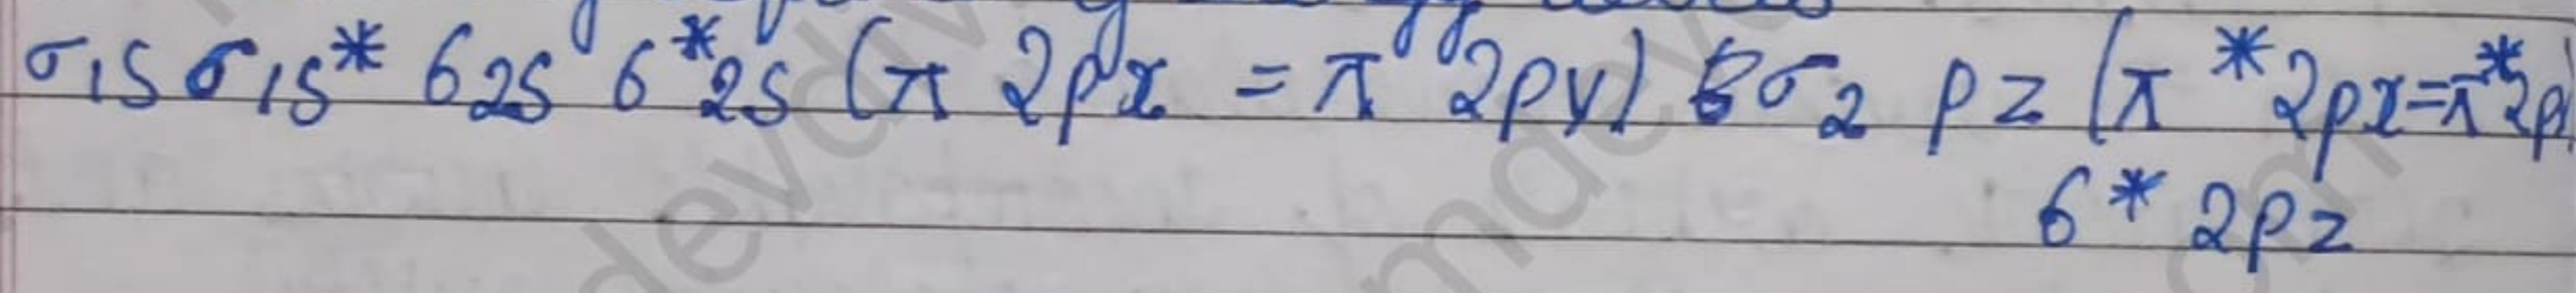 σ1s σ1s* σ2s σ*2s (π 2px = π 2py) σ2 pz (π*2px=π*2p)
σ* 2pz